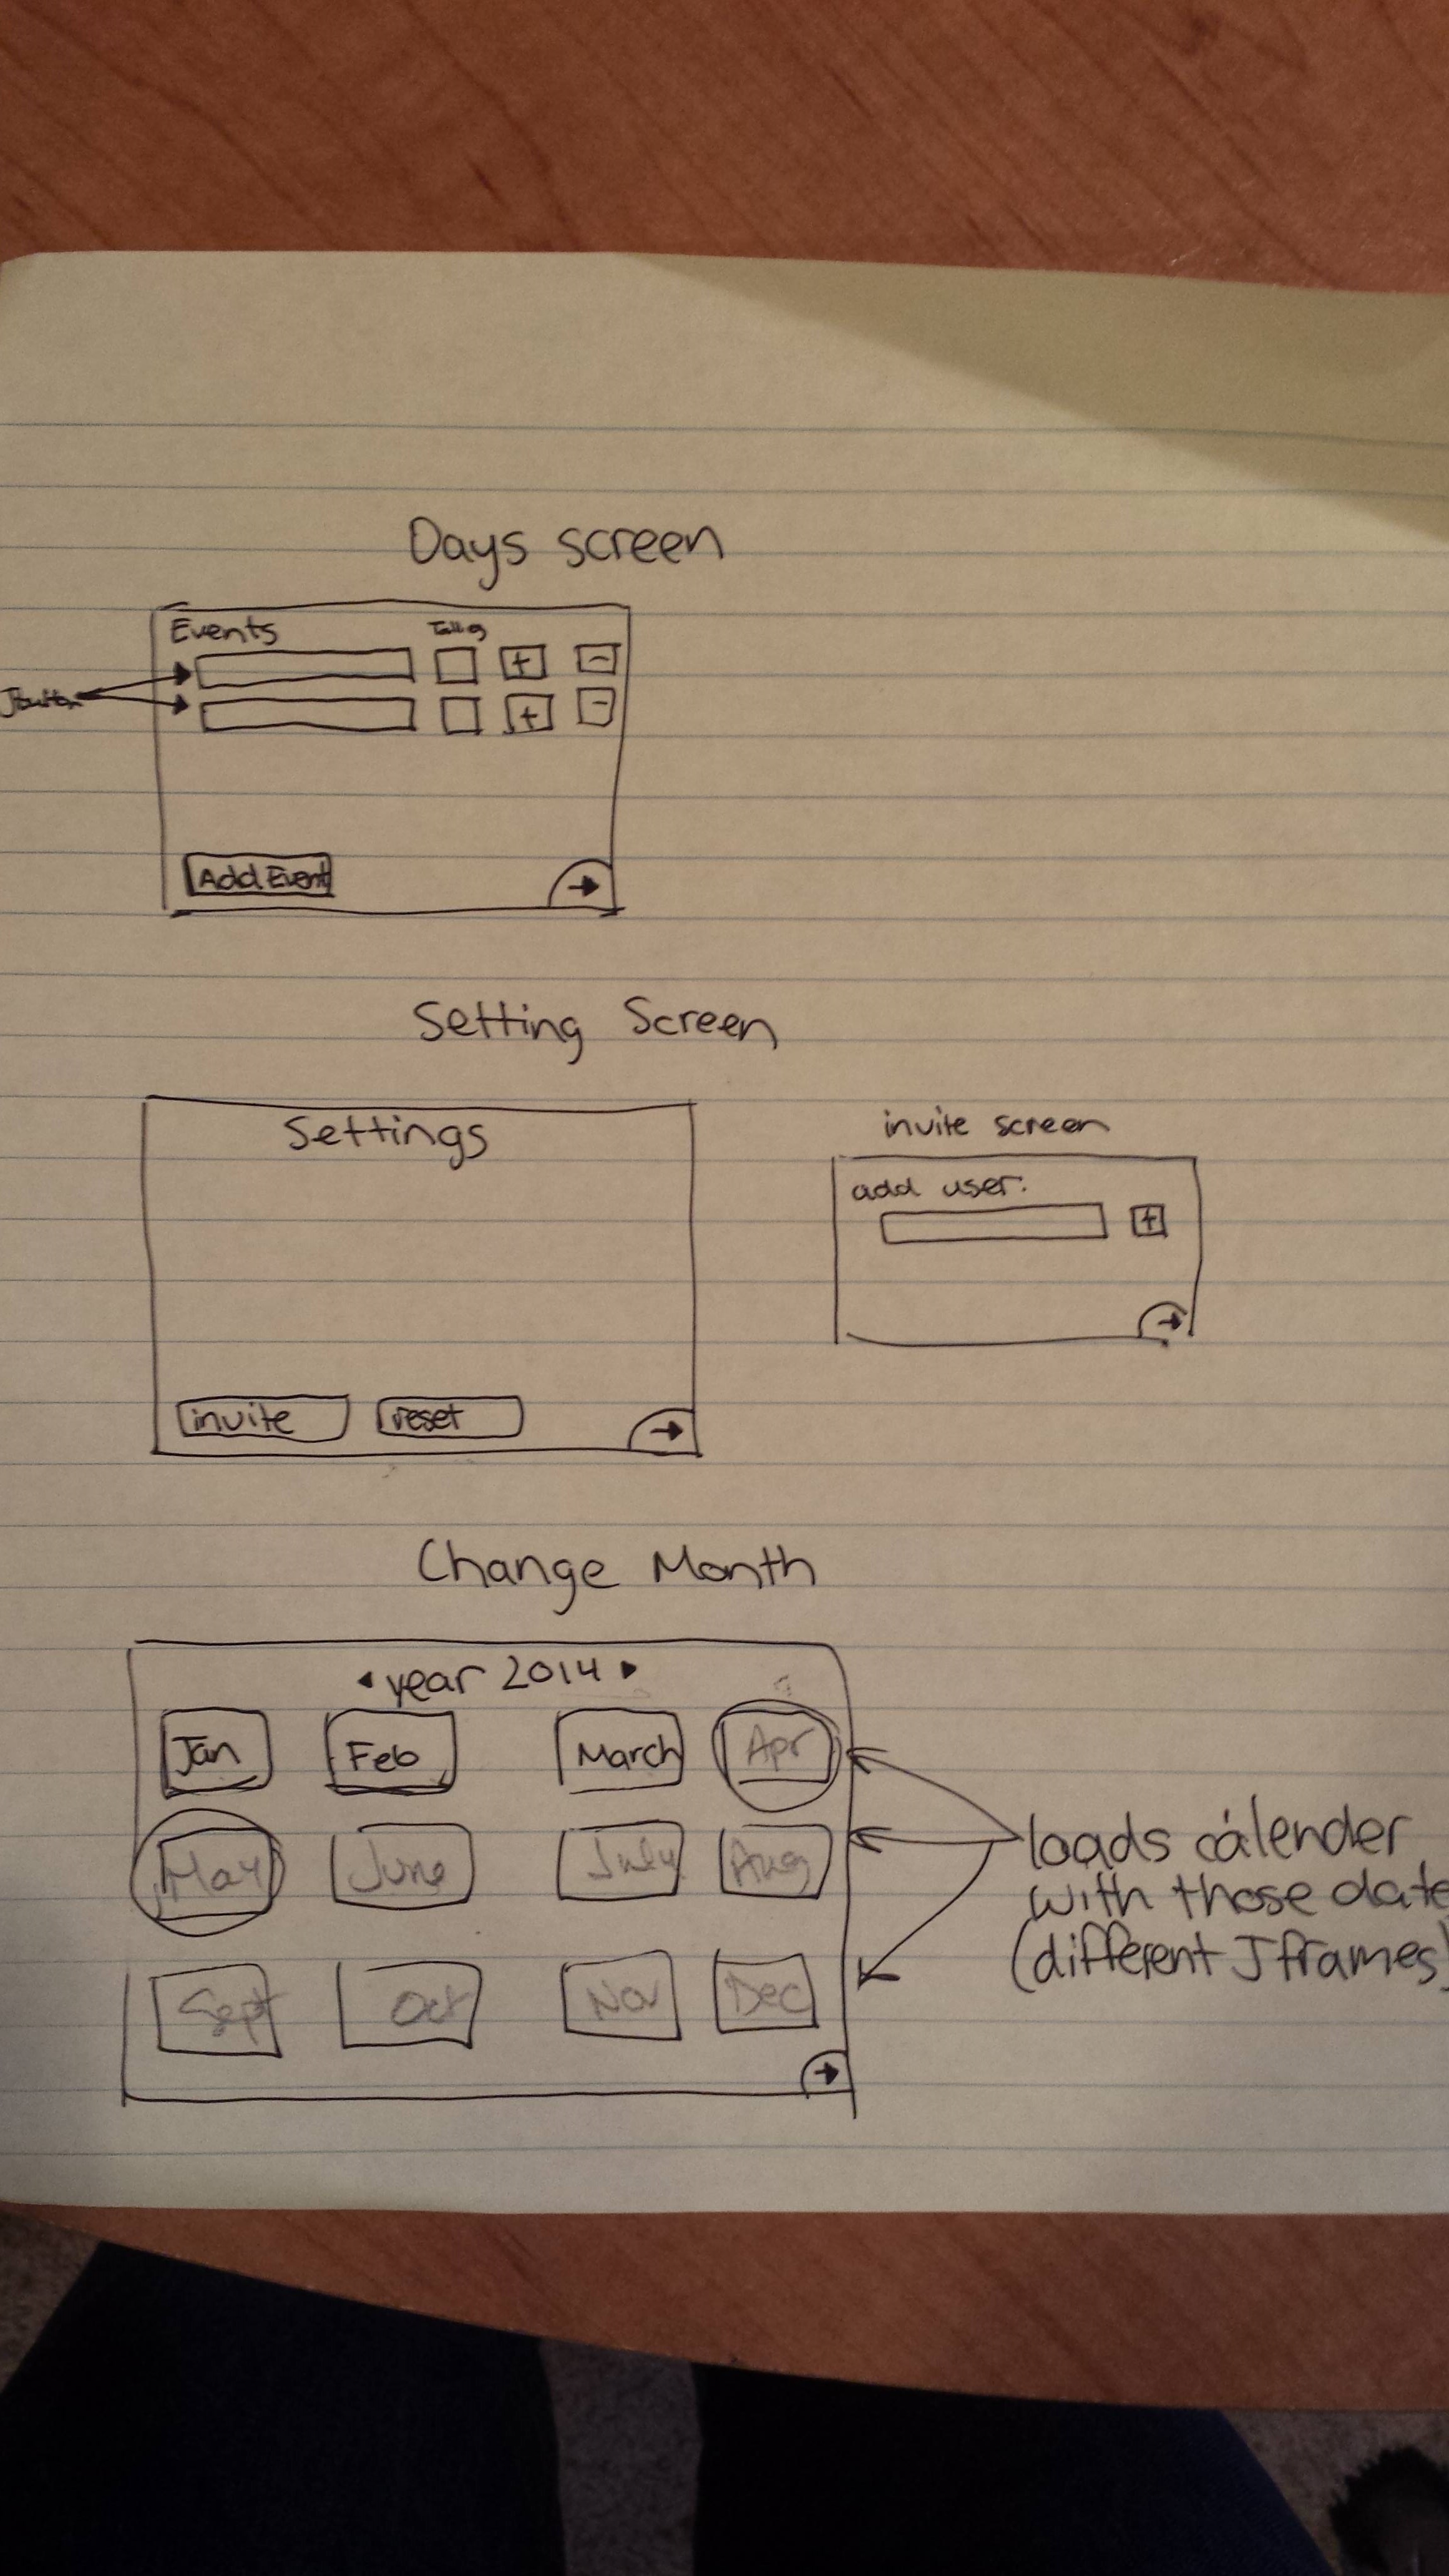 Days screen
Events
Jbutton
+ -
+ -
Add Event
→
Setting Screen
Settings
invite reset
→
invite screen
add user:
+
→
Change Month
year 2014
Jan Feb March Apr
May June July Aug
Sept Oct Nov Dec
→
loads calender
with those date
(different Jframes)